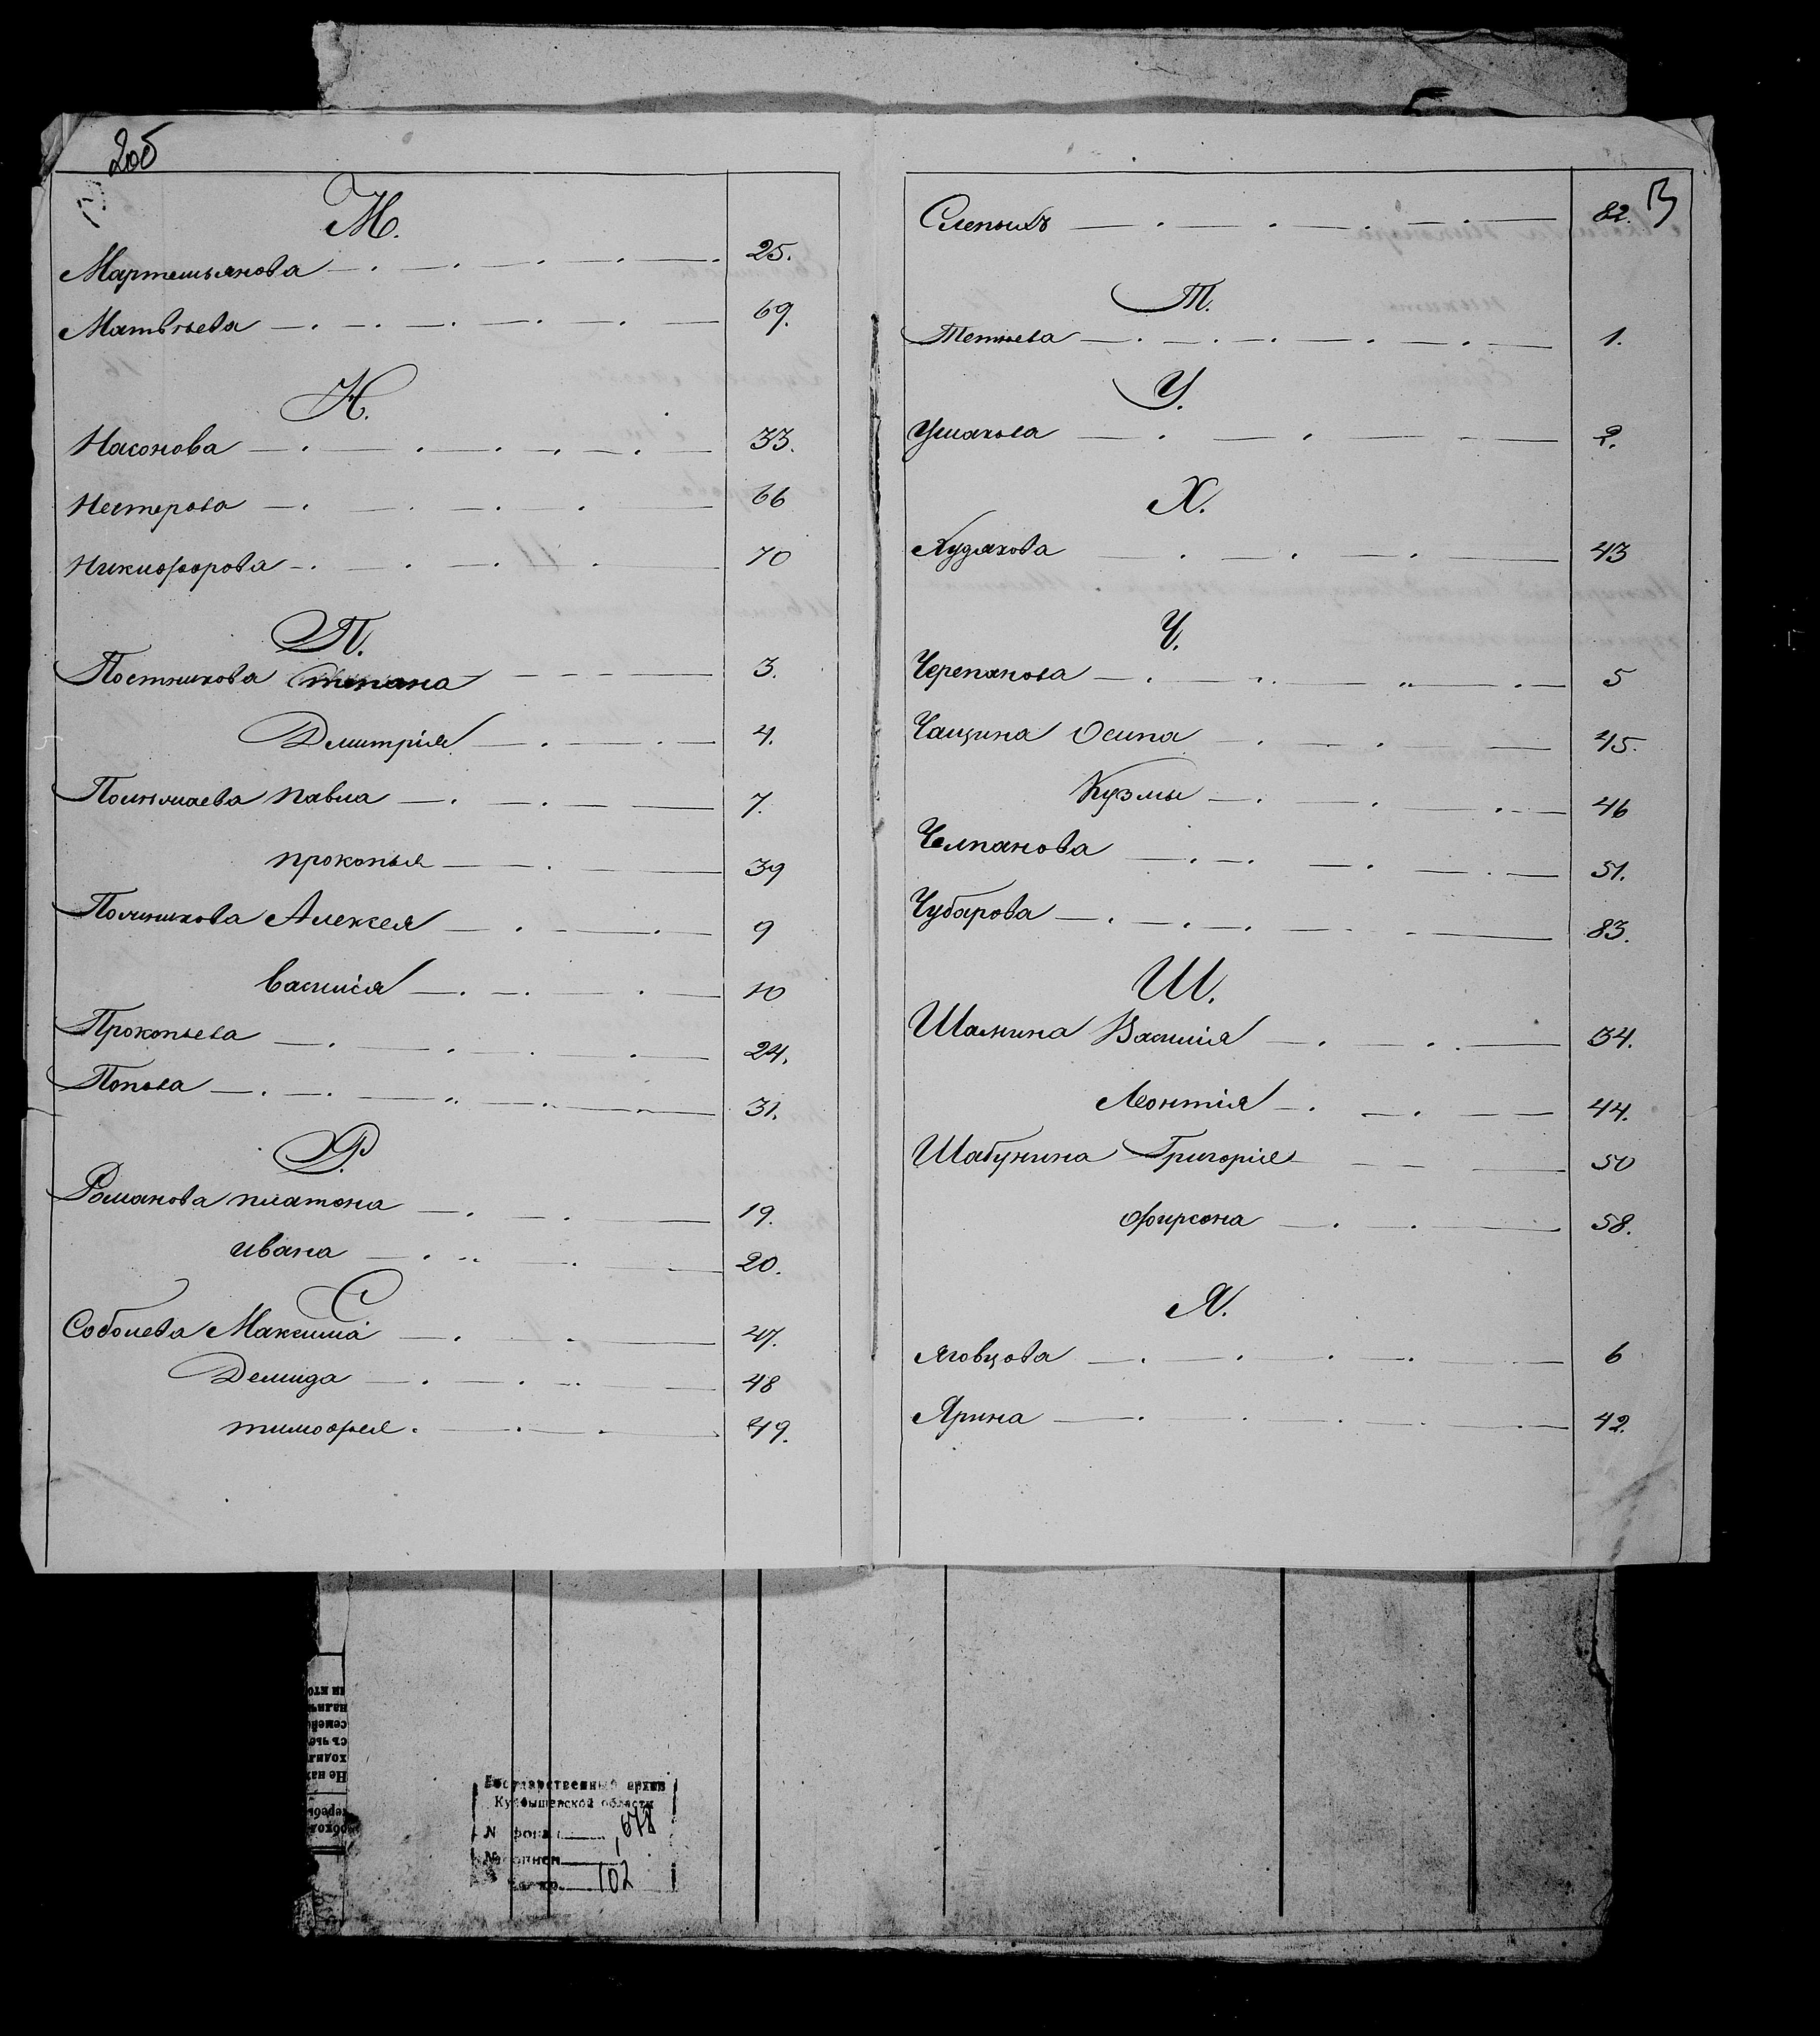 2об
М.
Мартемьянова 25.
Матвѣева 69.
Н.
Насонова 33.
Нестерова 66
Никифорова 70
П.
Постникова Степана 3.
Дмитрія 4.
Павла 7.
Прокопья 39
Алексея 9
Василія 10
Прокопьева 24.
Попова 31.
Р.
Романова Платона 19.
Ивана 20.
С
Соболева Максима 47.
Демида 48
Тимофея. 49.
Слепыхъ 82. 3
Т.
Тетнева 1.
У.
Ушакова 2.
Х.
Худякова 43
Ч.
Черепанова 5
Чащина Осипа 45.
Кузмы 46
Челпанова 51.
Чубарова 83.
Ш.
Шамнина Василія 34.
Леонтія 44.
Шабунина Григорія 50
Фирсона 58.
Я.
Яговцова 6
Ярина 42.
Государственный архив
Куйбышевской области
№ фонда 678
№ описи 1
102